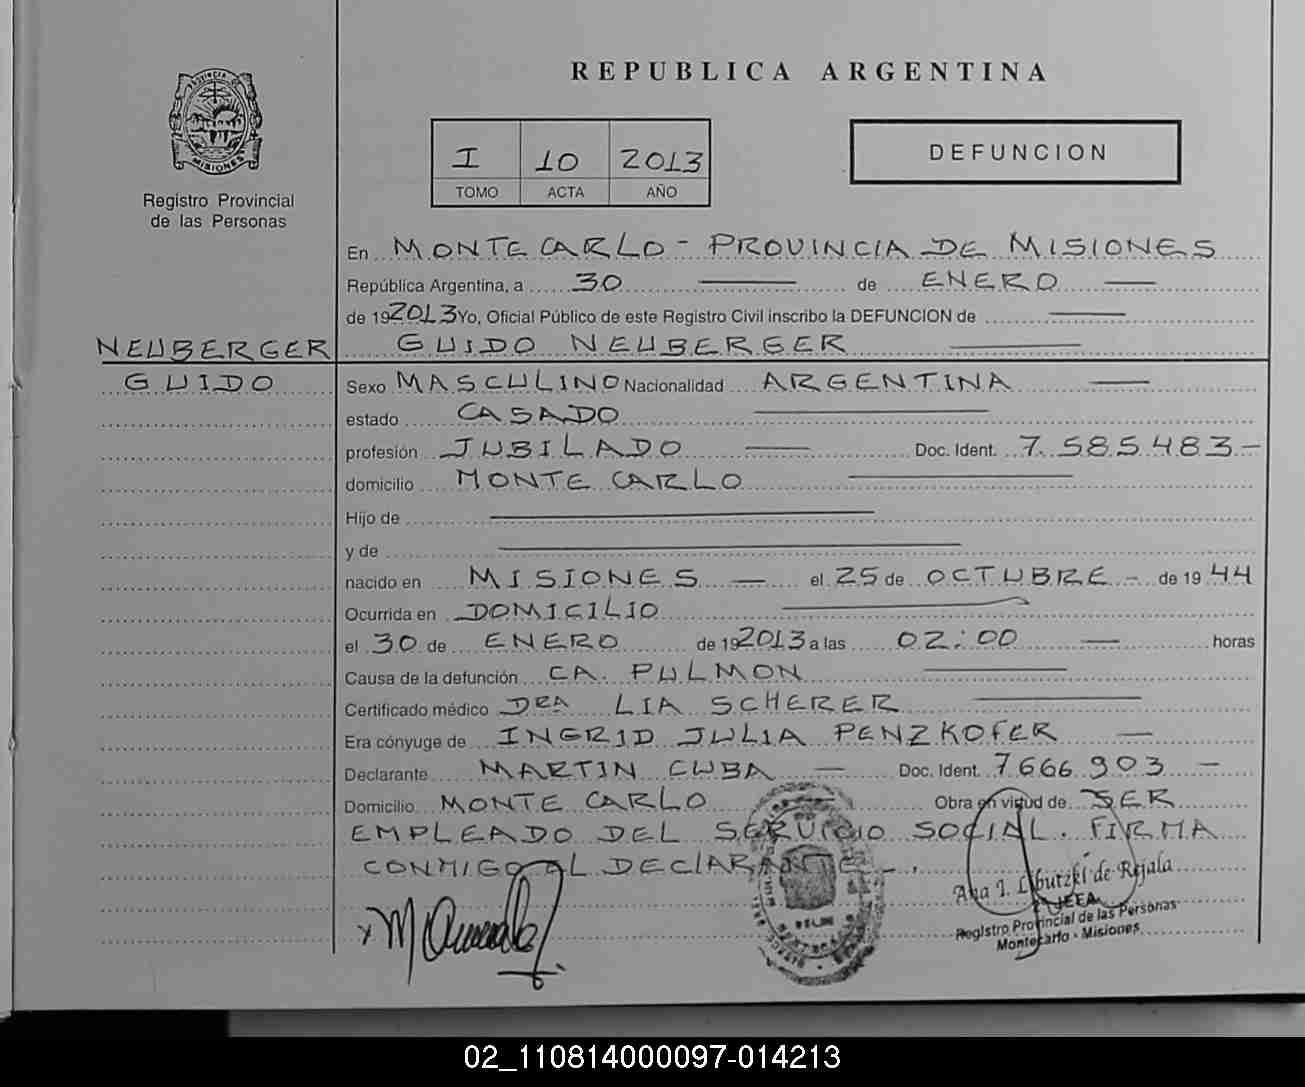 REPUBLICA ARGENTINA
PROVINCIA DE
MISIONES
Registro Provincial
de las Personas
I 10 2013
TOMO ACTA AÑO
DEFUNCION
En MONTECARLO - PROVINCIA DE MISIONES
República Argentina, a 30 de ENERO
de 192013 Yo, Oficial Público de este Registro Civil inscribo la DEFUNCION de
NEUBERGER GUIDO NEUBERGER
GUIDO Sexo MASCULINO Nacionalidad ARGENTINA
estado CASADO
profesión JUBILADO Doc. Ident. 7.585.483-
domicilio MONTE CARLO
Hijo de
y de
nacido en MISIONES el 25 de OCTUBRE - de 1944
Ocurrida en DOMICILIO
el 30 de ENERO de 192013 a las 02:00 horas
Causa de la defunción CA. PULMON
Certificado médico DRA LIA SCHERER
Era cónyuge de INGRID JULIA PENZKOFER
Declarante MARTIN CUBA Doc. Ident. 7666903 -
Domicilio MONTE CARLO Obra en virtud de SER
EMPLEADO DEL SERVICIO SOCIAL. FIRMA
CONMIGO EL DECLARANTE -.
Ana I. de Rejala
JEFA
Registro Provincial de las Personas
Montecarlo - Misiones
02_110814000097-014213